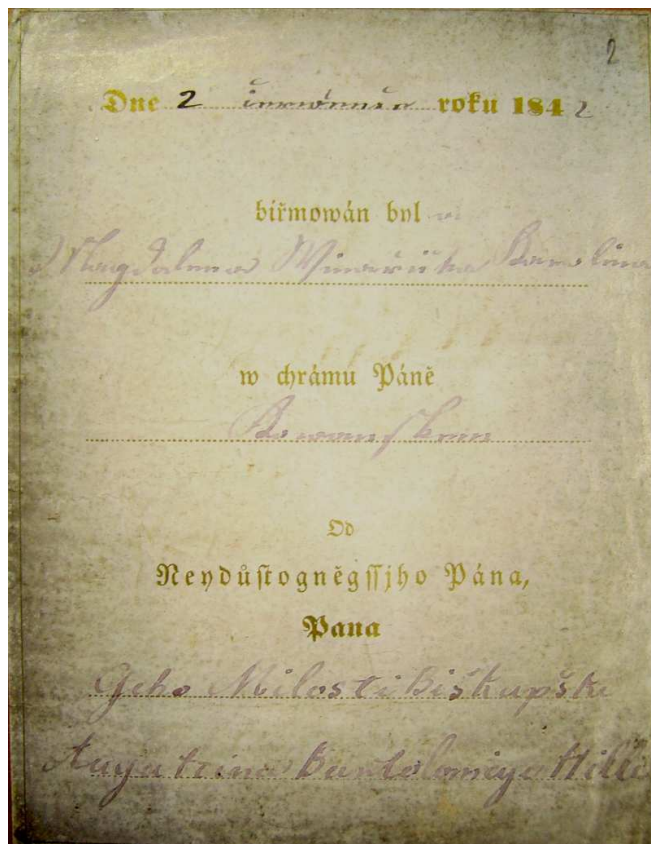 2
Dne 2 července roku 1842
biřmowán byl
Magdalena Winařická Karolina
w chrámu Páně
Od
Neydůstogněgssjho Pána,
Pana
Geho Milosti Biskupské
Augustina Bartoloměje Hille